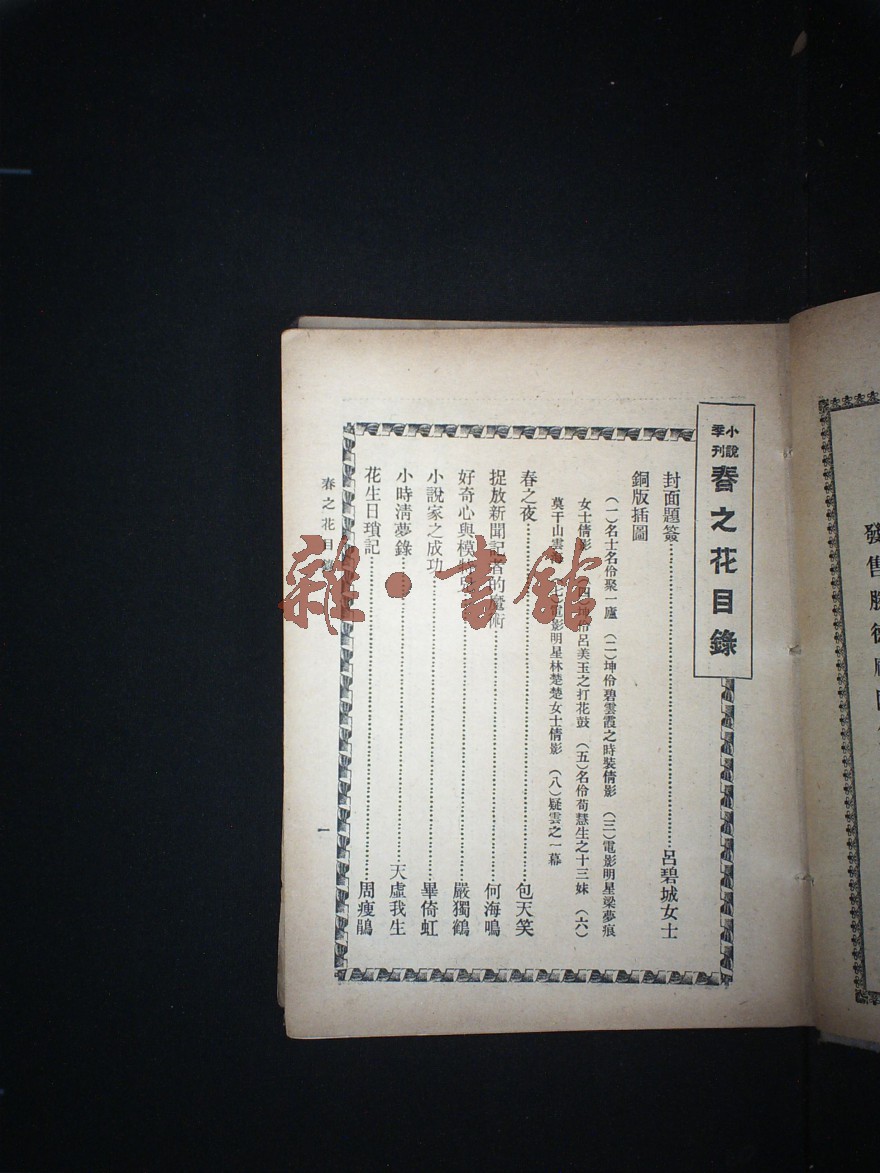 小說季刊 春之花目錄
封面題簽……呂碧城女士
銅版插圖
(一)名士名伶聚一廬 (二)坤伶碧雲霞之時裝倩影 (三)電影明星梁夢痕
女士倩影 (四)坤伶呂美玉之打花鼓 (五)名伶荀慧生之十三妹 (六)
莫干山雲 (七)電影明星林楚楚女士倩影 (八)疑雲之一幕
春之夜……包天笑
捉放新聞記者的魔術……何海鳴
好奇心與模……嚴獨鶴
小說家之成功……畢倚虹
小時清夢錄……天虛我生
花生日瑣記……周瘦鵑
春之花目
一
雜·書館
發售